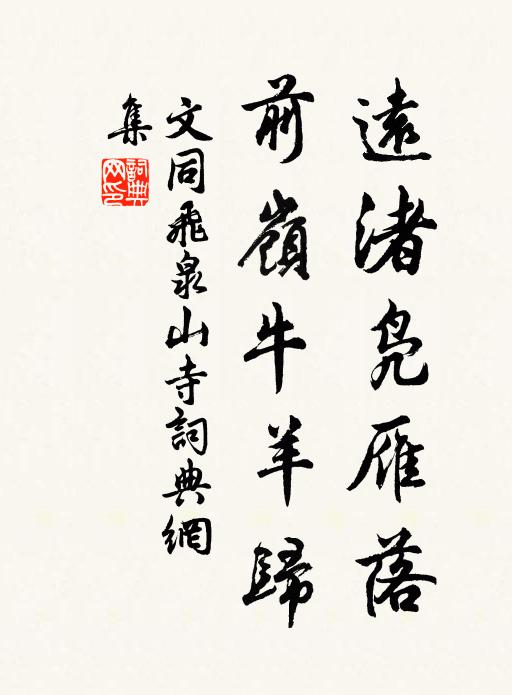 遠渚鳧雁落
前嶺牛羊歸
文同飛泉山寺詞典網
集
詞典
网印